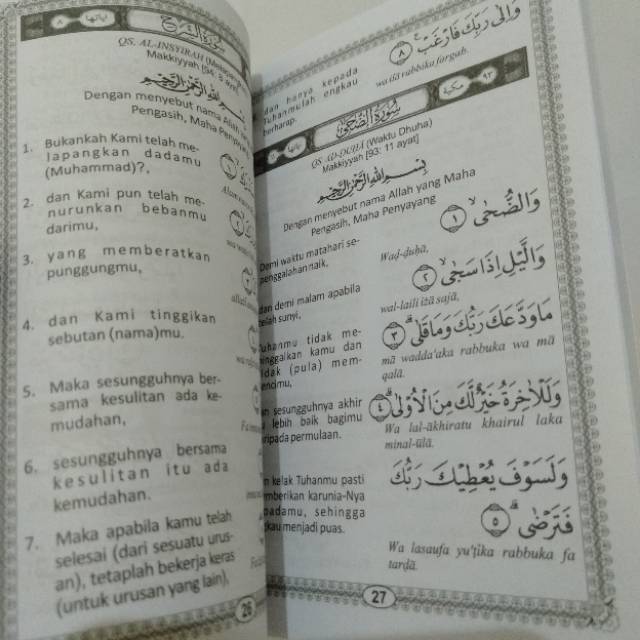 QS. AL-INSYIRAH
Makkiyyah [94: 8 ayat]
بِسْمِ اللهِ الرَّحْمٰنِ الرَّحِيْمِ
Dengan menyebut nama Allah
Pengasih, Maha Penyayang
1. Bukankah Kami telah me-
lapangkan dadamu
(Muhammad)?,
2. dan Kami pun telah me-
nurunkan bebanmu
darimu,
3. yang memberatkan
punggungmu,
4. dan Kami tinggikan
sebutan (nama)mu.
5. Maka sesungguhnya ber-
sama kesulitan ada ke-
mudahan,
6. sesungguhnya bersama
kesulitan itu ada
kemudahan.
7. Maka apabila kamu telah
selesai (dari sesuatu urus-
an), tetaplah bekerja keras
(untuk urusan yang lain),
26
وَاِلٰى رَبِّكَ فَارْغَبْ ۝٨
dan hanya kepada
Tuhanmulah engkau
berharap.
wa ilā rabbika fargab.
سُوْرَةُ الضُّحٰى
QS. AD-DUHA (Waktu Dhuha)
Makkiyyah [93: 11 ayat]
بِسْمِ اللهِ الرَّحْمٰنِ الرَّحِيْمِ
Dengan menyebut nama Allah yang Maha
Pengasih, Maha Penyayang
وَالضُّحٰىۙ ۝١
Demi waktu matahari se-
penggalahan naik,
Waḍ-ḍuḥā,
وَالَّيْلِ اِذَا سَجٰىۙ ۝٢
dan demi malam apabila
telah sunyi,
wal-laili iżā sajā,
مَا وَدَّعَكَ رَبُّكَ وَمَا قَلٰىۗ ۝٣
Tuhanmu tidak me-
kamu dan
(pula) mem-
mā wadda'aka rabbuka wa mā
qalā.
وَلَلْاٰخِرَةُ خَيْرٌ لَّكَ مِنَ الْاُوْلٰىۗ ۝٤
sesungguhnya akhir
lebih baik bagimu
permulaan.
Wa lal-ākhiratu khairul laka
minal-ūlā.
وَلَسَوْفَ يُعْطِيْكَ رَبُّكَ
فَتَرْضٰىۗ ۝٥
kelak Tuhanmu pasti
karunia-Nya
sehingga
menjadi puas.
Wa lasaufa yu'ṭīka rabbuka fa
tarḍā.
27